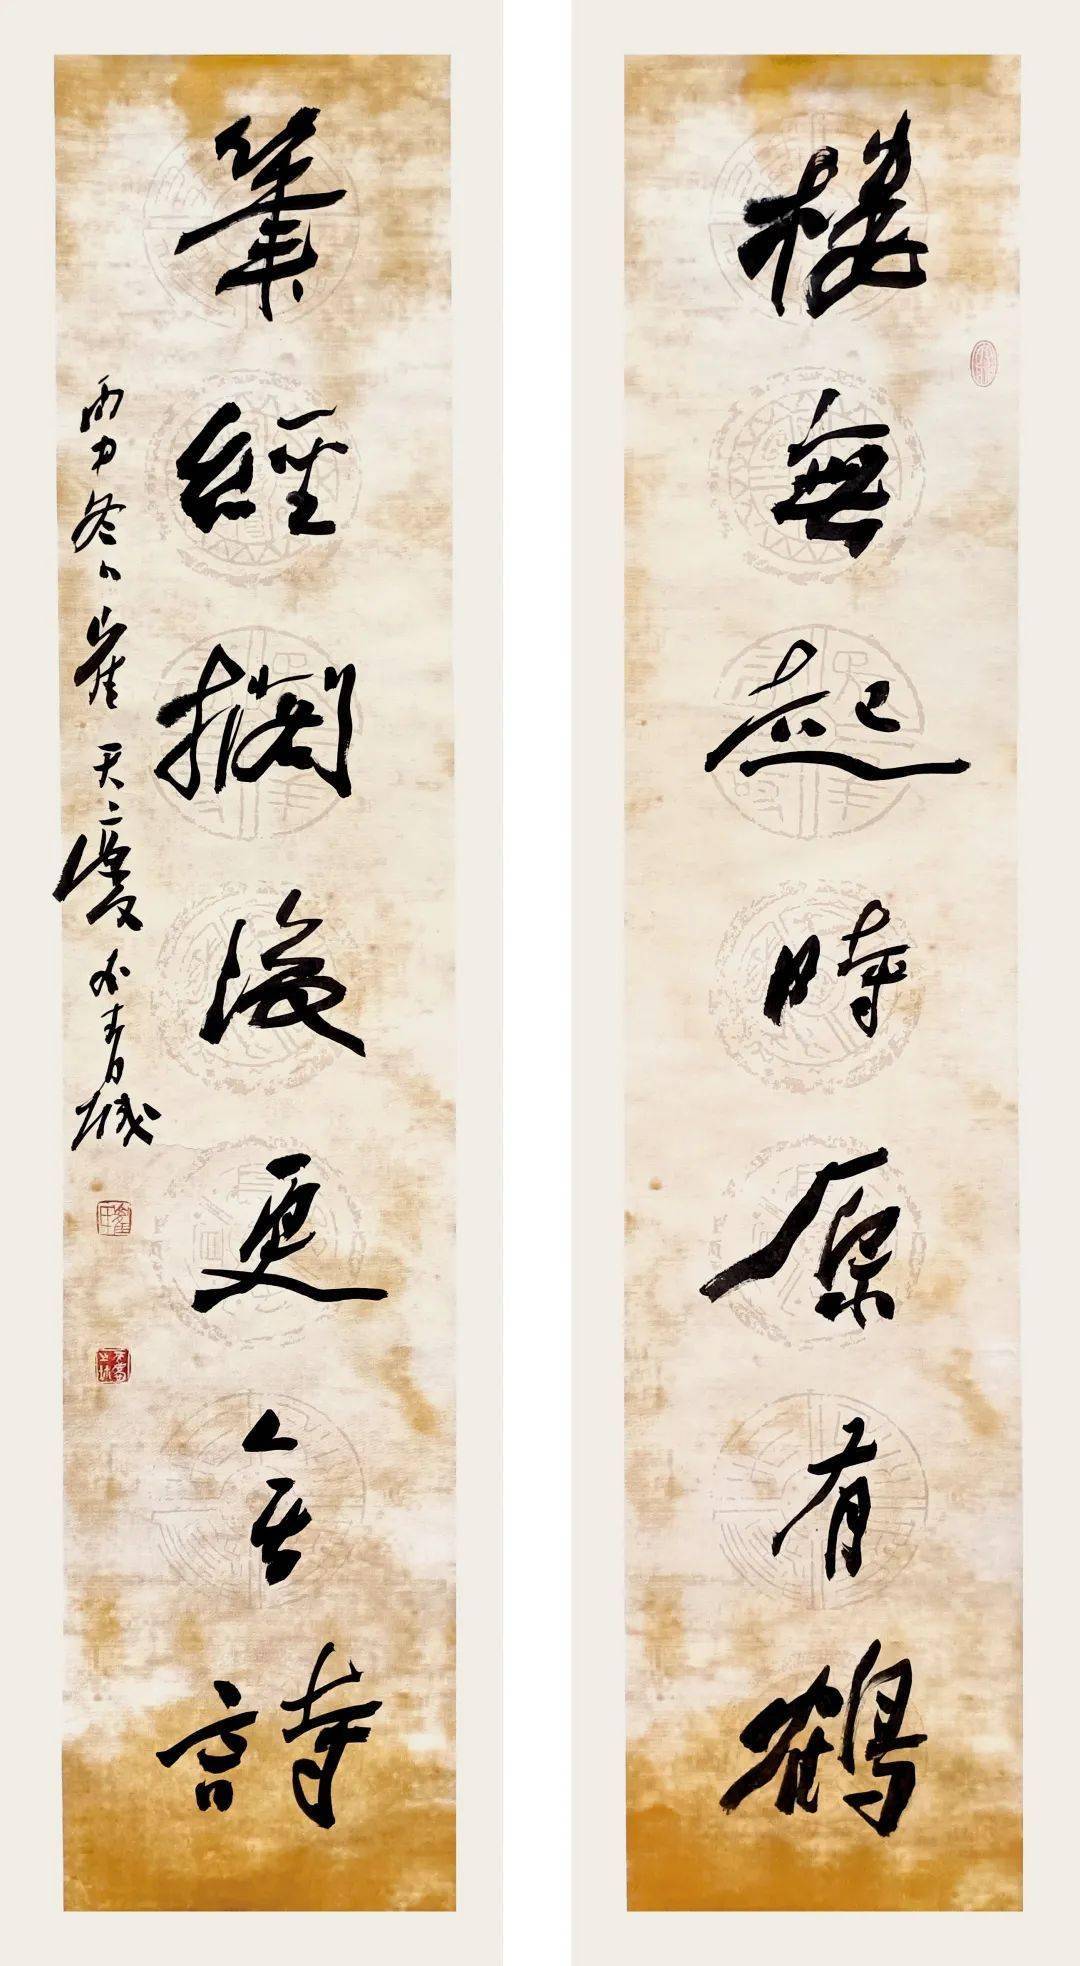 樓無起時原有鶴
筆經擱後更無詩
丙申冬月崔天慶於青城